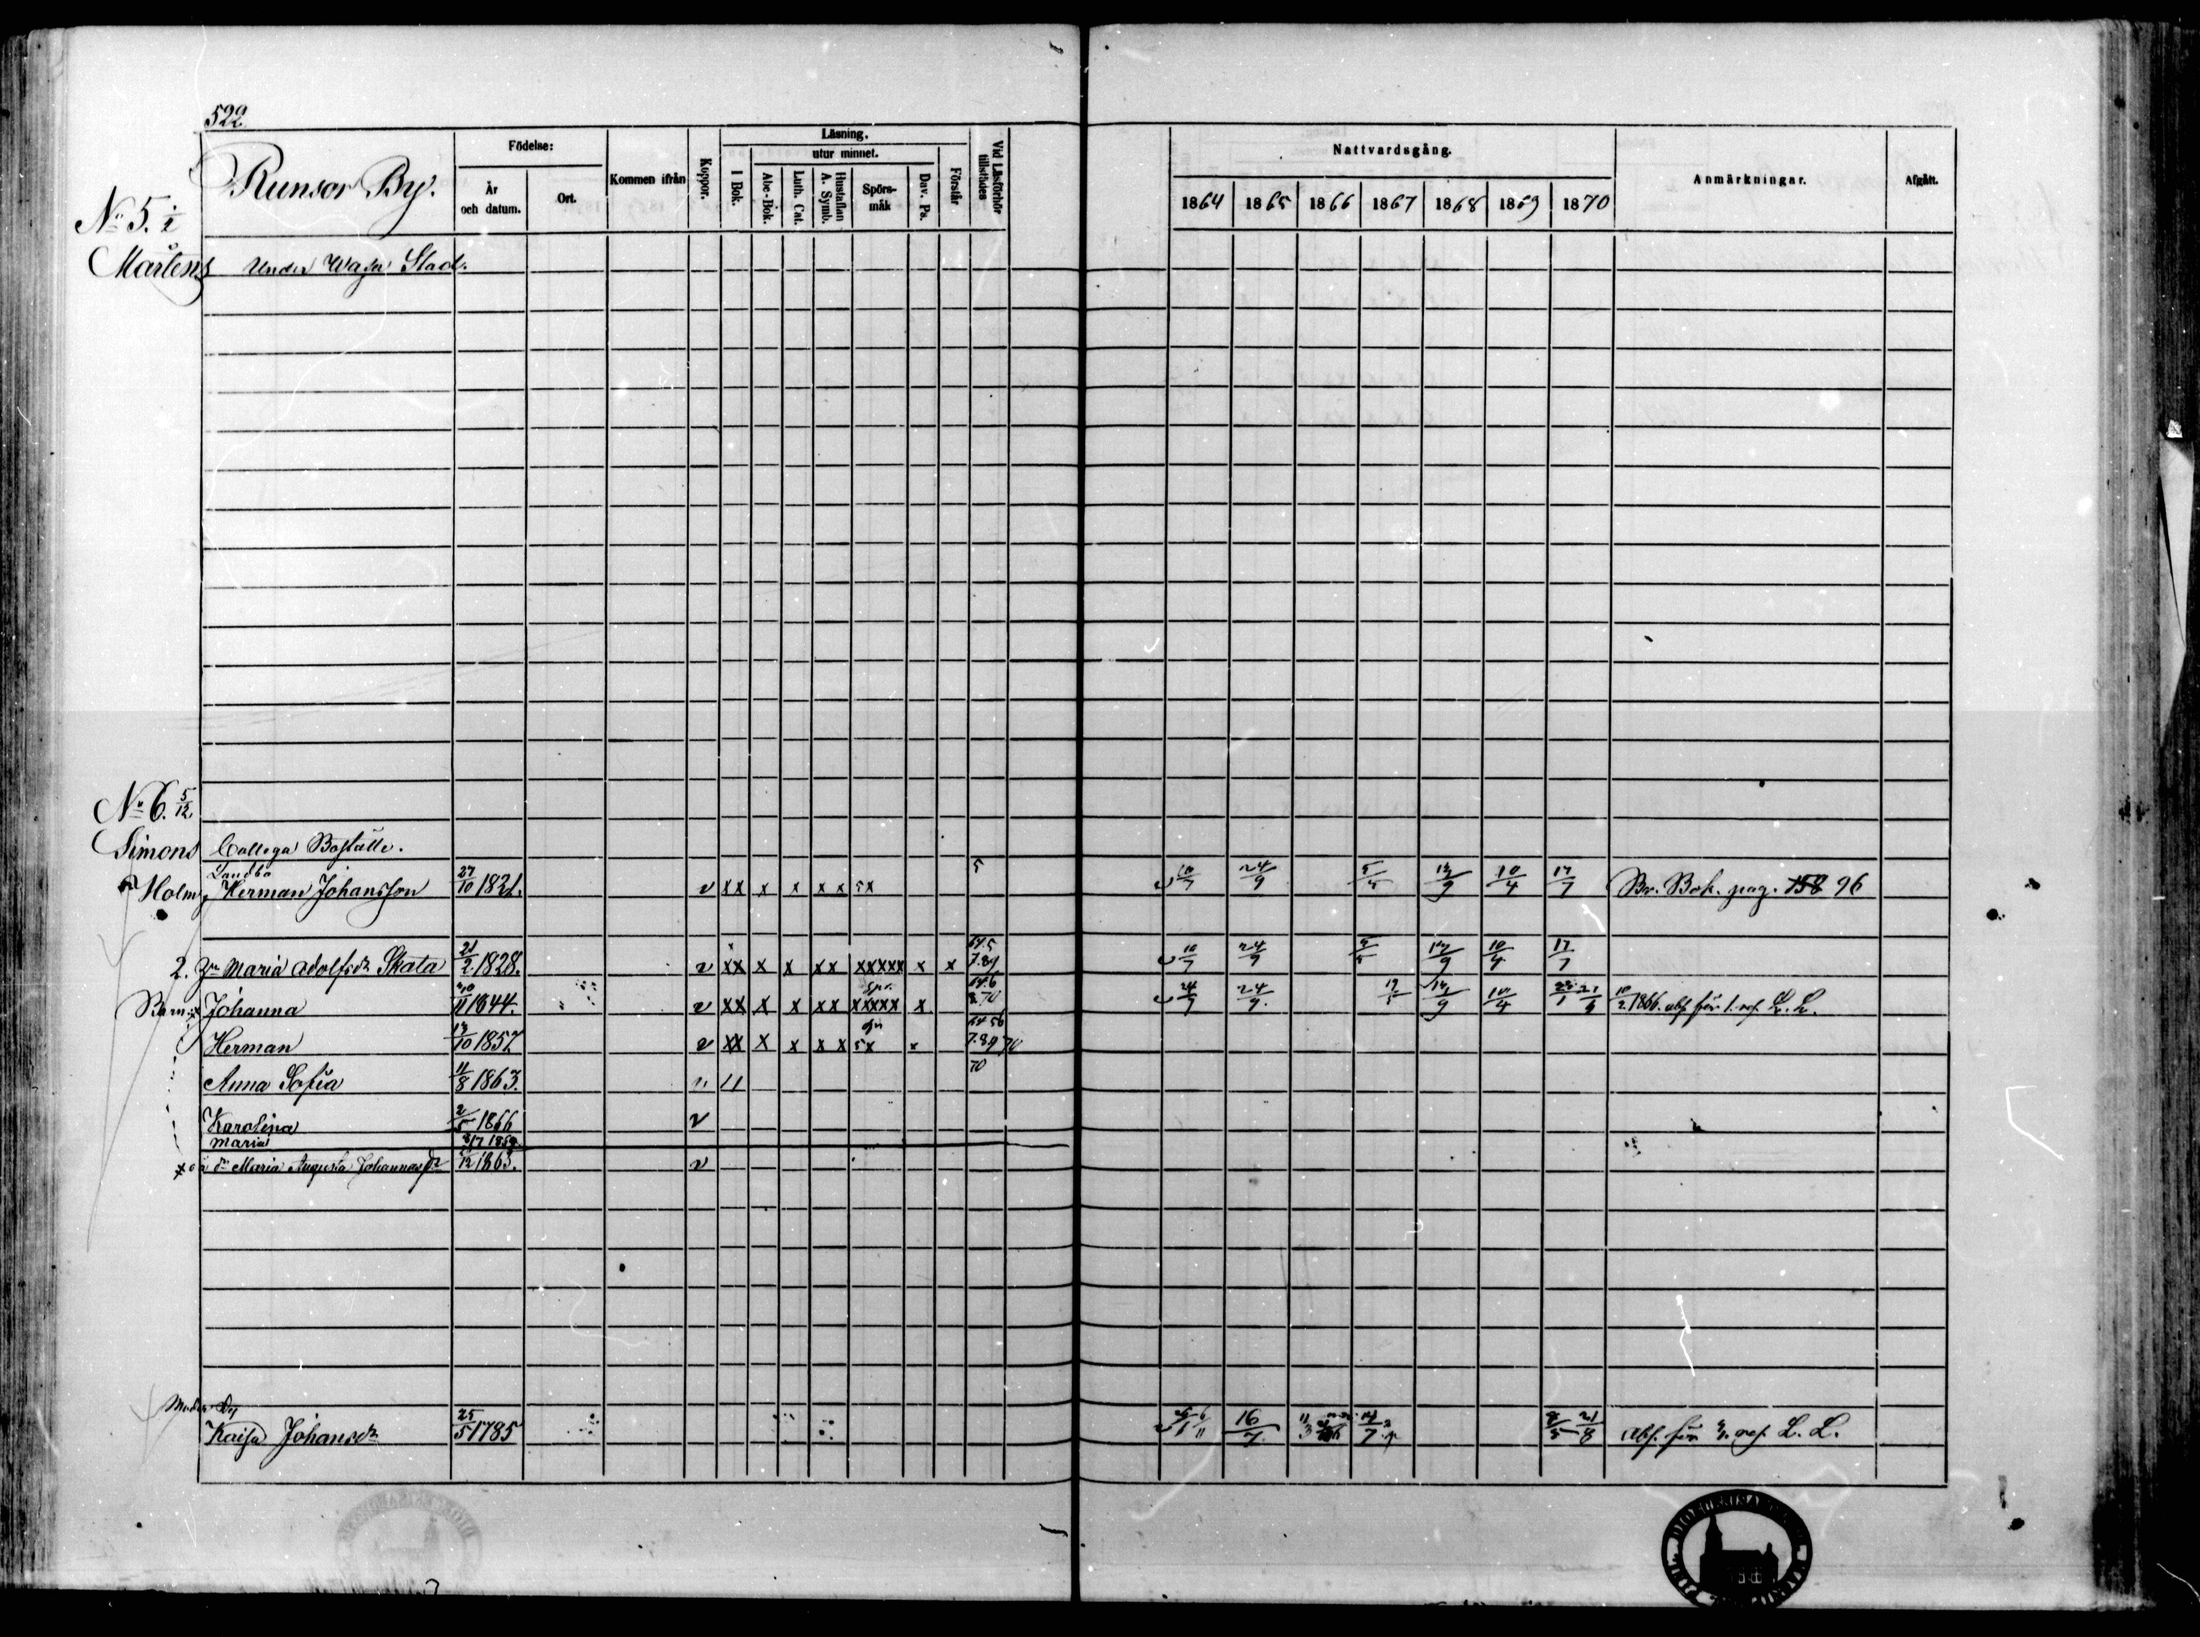 522
Runsor By.
Födelse:
År och datum.
Ort.
Kommen ifrån
Koppor.
Läsning.
I Bok.
utur minnet.
Abc-Bok.
Luth. Cat.
Hustaflan A. Symb.
Spörs-mål
Dav. Ps.
Förstår
Vid Läsförhör tillstädes
Nattvardsgång.
1864 1865 1866 1867 1868 1869 1870
Anmärkningar.
Afgått.
No 5.
Mårtens Under Wasa Stad.
No 6. 5/12
Simons Collega Boställe.
Landbo
Holm Herman Johansson 27/10 1821. v xx x x x x 5x 5 10/7 24/9 5/5 12/9 10/4 17/7 Br. Bok. pag. 158 96
2. Maria Adolfsdr Skata 21/2 1828. v xx x x xx xxxxx x x 64.5 7.89 10/7 24/9 5/5 12/9 10/4 17/7
Barn: Johanna 1844. v xx x x xx xxxxx x 24/7 24/9 12/9 10/4 10/2 1866. abs. för 1. L. L.
Herman 1857 v xx x x x x 5x x 7.89 70
Anna Sofia 11/8 1863. 70
Karolina 2/5 1866 v
Maria
Maria Augusta Johannasdr 1863. v
Moder
Kaisa Johansdr 25/5 1785 16/7 21/8 Abs. för L. L.